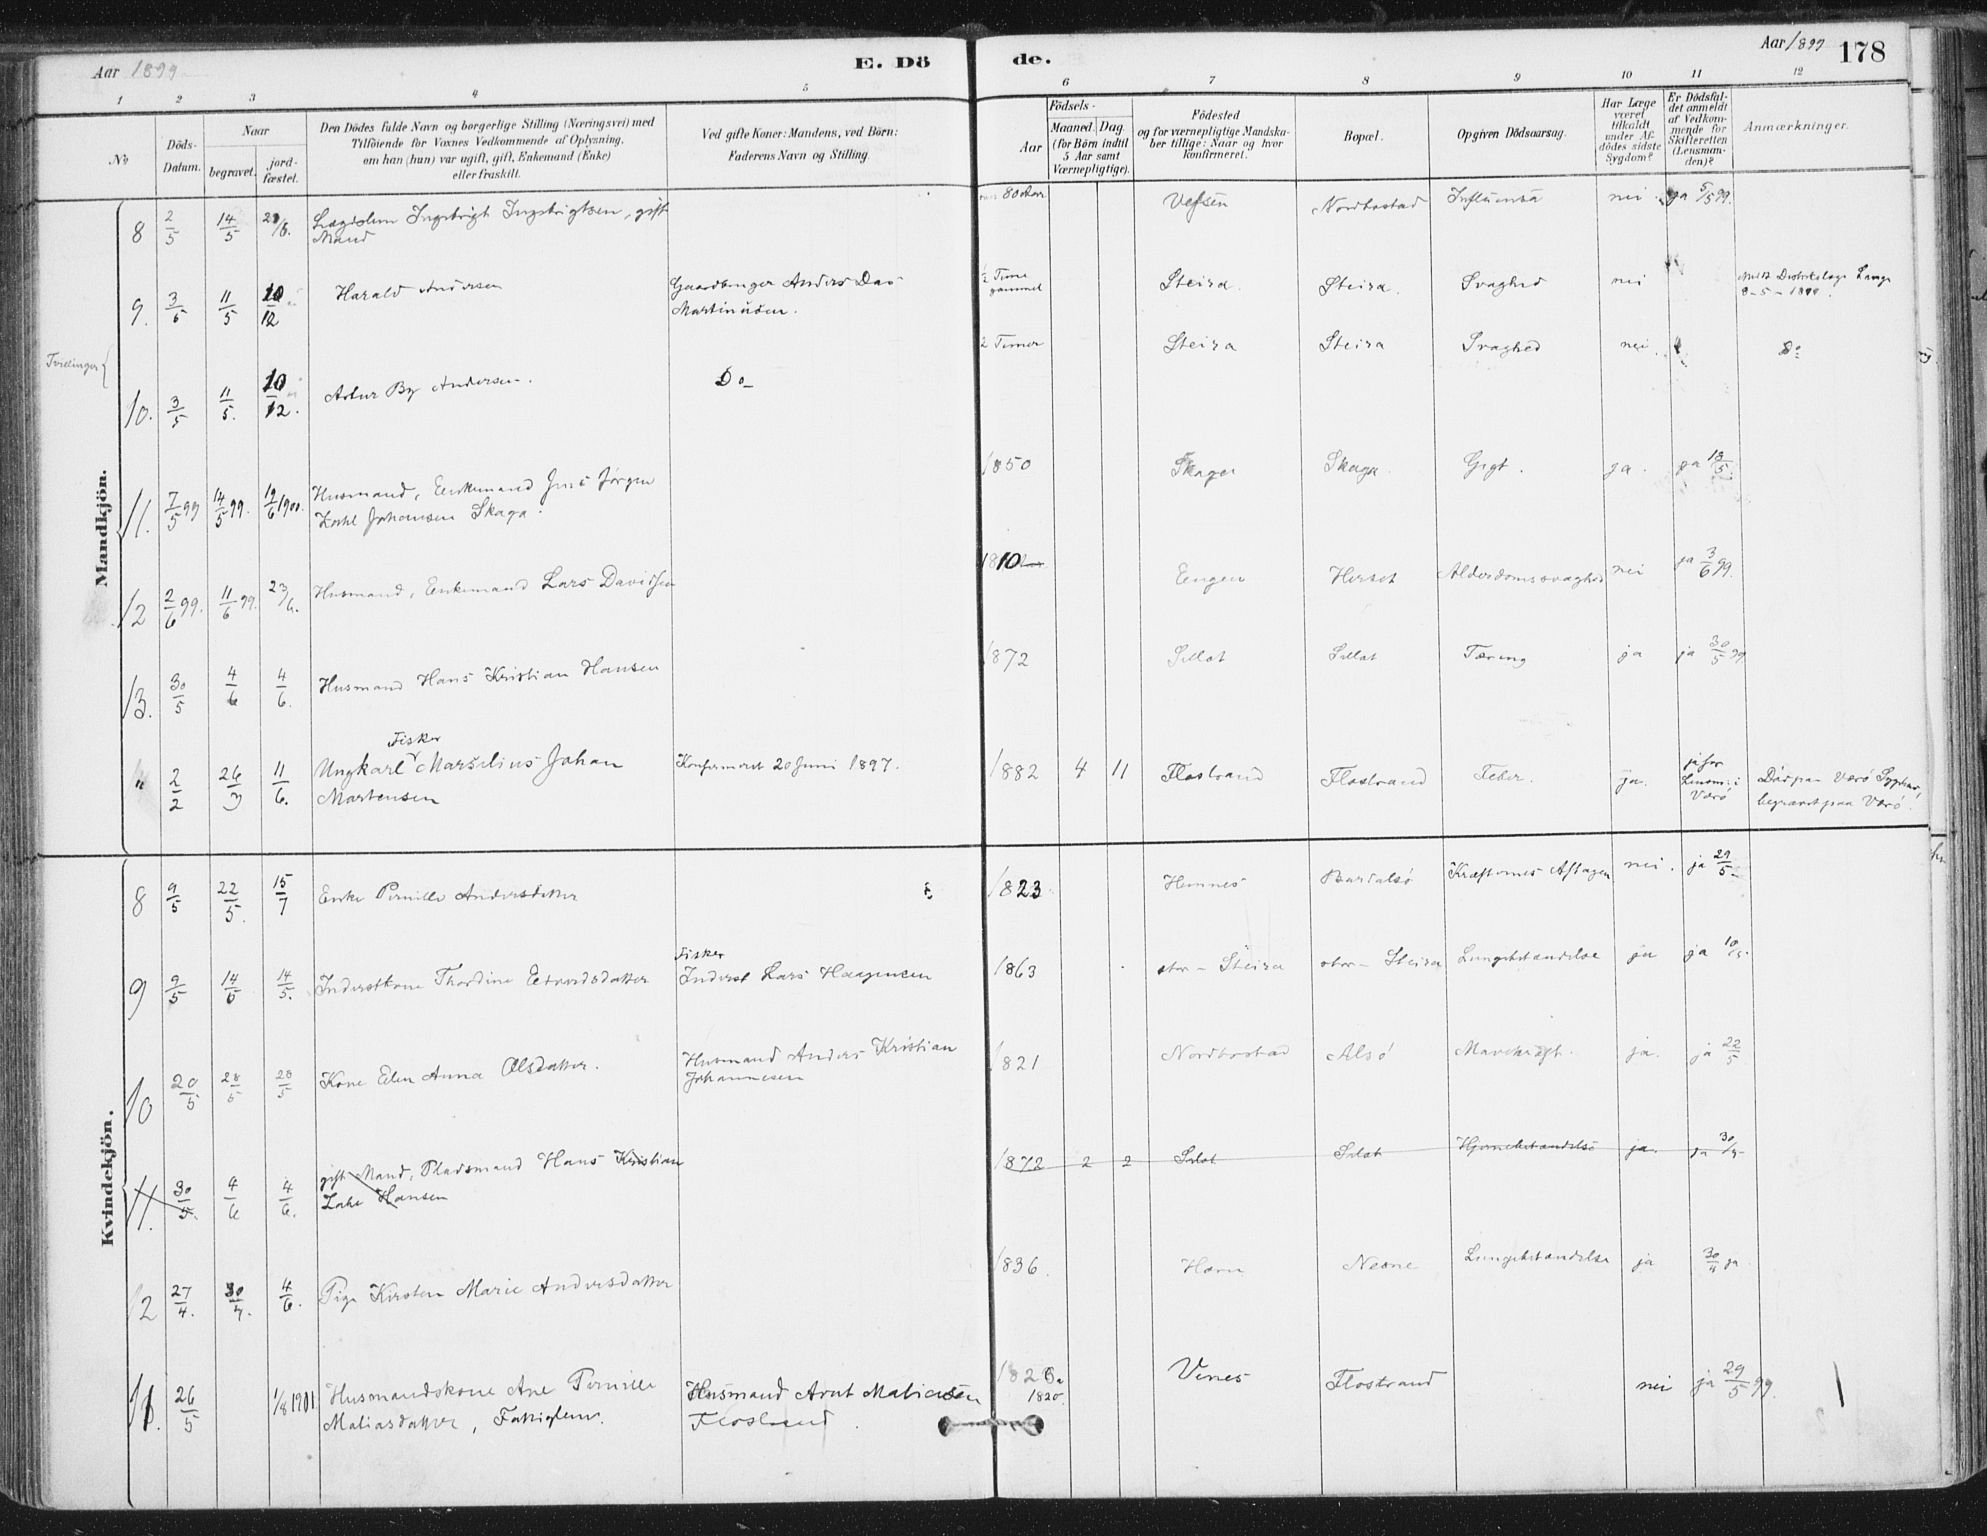 Aar 1899
E. Dö
de.
Aar 1899
178
1 2 3 4 5 6 7 8 9 10 11 12
No
Döds-
Datum.
Naar
begravet.
jord-
fæstet.
Den Dödes fulde Navn og borgerlige Stilling (Næringsvei) med
Tilföiende for Voxnes Vedkommende af Oplysning,
om han (hun) var ugift, gift, Enkemand (Enke)
eller fraskilt.
Ved gifte Koner: Mandens, ved Börn:
Faderens Navn og Stilling.
Födsels-
Aar
Maaned. Dag.
(for Börn indtil
5 Aar samt
Værnepligtige).
Födested
og for værnepligtige Mandska-
ber tillige: Naar og hvor
konfirmeret.
Bopæl.
Opgiven Dödsaarsag.
Har Læge
været
tilkaldt
under Af-
dödes sidste
Sygdom?
Er Dödsfal-
det anmeldt
af Vedkom-
mende for
Skifteretten
(Lensman-
den)?
Anmærkninger.
Mandkjön.
8 2/5 14/5 Lægdslem Ingebrigt Ingebrigtsen, gift 80 Aar Vefsen Nordbostad Influensa nei ja 5/5 99.
Mand
9. 3/5 11/5 10/12 Harald Andersen Gaardbruger Anders Das ½ Time Steira. Steira. Svaghed nei
Martinusen. gammel 8-5-1899.
Tvillinger
10. 3/5 11/5. 10/12. Artur By Andersen. Do 2 Timer Steira Steira Svaghed nei. Do
11. 7/5 99 14/5 99. 12/6 1900. Husmand, Enkemand Jens Jørgen 1850 Skaga Skaga. Gigt. ja. ja 13/5.
Johansen Skaga.
12 2/6 99. 11/6 99. 23/6. Husmand, Enkemand Lars Davidsen 1810 Eengen Herset Alderdomssvaghed nei ja 3/6 99.
13. 30/5 4/6 4/6. Husmand Hans Kristian Hansen 1872 Sillat Sillat Tæring ja ja 30/5 99
Fisker
" 2/2 26/3 11/6. Ungkarl Marselius Johan Konfirmeret 20 Juni 1897. 1882 4 11 Flostrand Flostrand Feber. ja. ja for
Lensm. i
Værö
Martensen
Död paa Værö Sygehus,
begravet paa Værö.
Kvindekjön.
8 9/5 22/5. 15/7 Enke Pernille Andersdatter 1823 Hemnes Bardalsö Kræfternes Aftagen nei. ja 29/5
Fisker
9 9/5 14/5 14/5. Inderstkone Thordine Edvardsdatter Inderst Lars Haagensen 1863 stor-Steira stor-Steira Lungebetændelse ja ja 10/5.
10 20/5 28/5 28/5 Kone Elen Anna Olsdatter. Husmand Anders Kristian 1821 Nordbostad Alsö Mavekræft. ja. ja 22/5
Johannesen
11. 30/5. 4/6 4/6. gift Mand, Pladsmand Hans Kristian 1872 2 2 Silat Silat Hjernebetændelse ja. ja 30/5
Hansen
12 27/4. 30/4. 4/6. Pige Kirsten Marie Andersdatter 1836. Havn Nesne Lungebetændelse ja 30/4 ja
26/5 1/8 1901 Husmandskone Ane Pernille Husmand Arnt Matiassen 1826 Vines Flostrand nei ja 29/5 99.
1820.
Matiasdatter, Fattiglem. Flostrand.